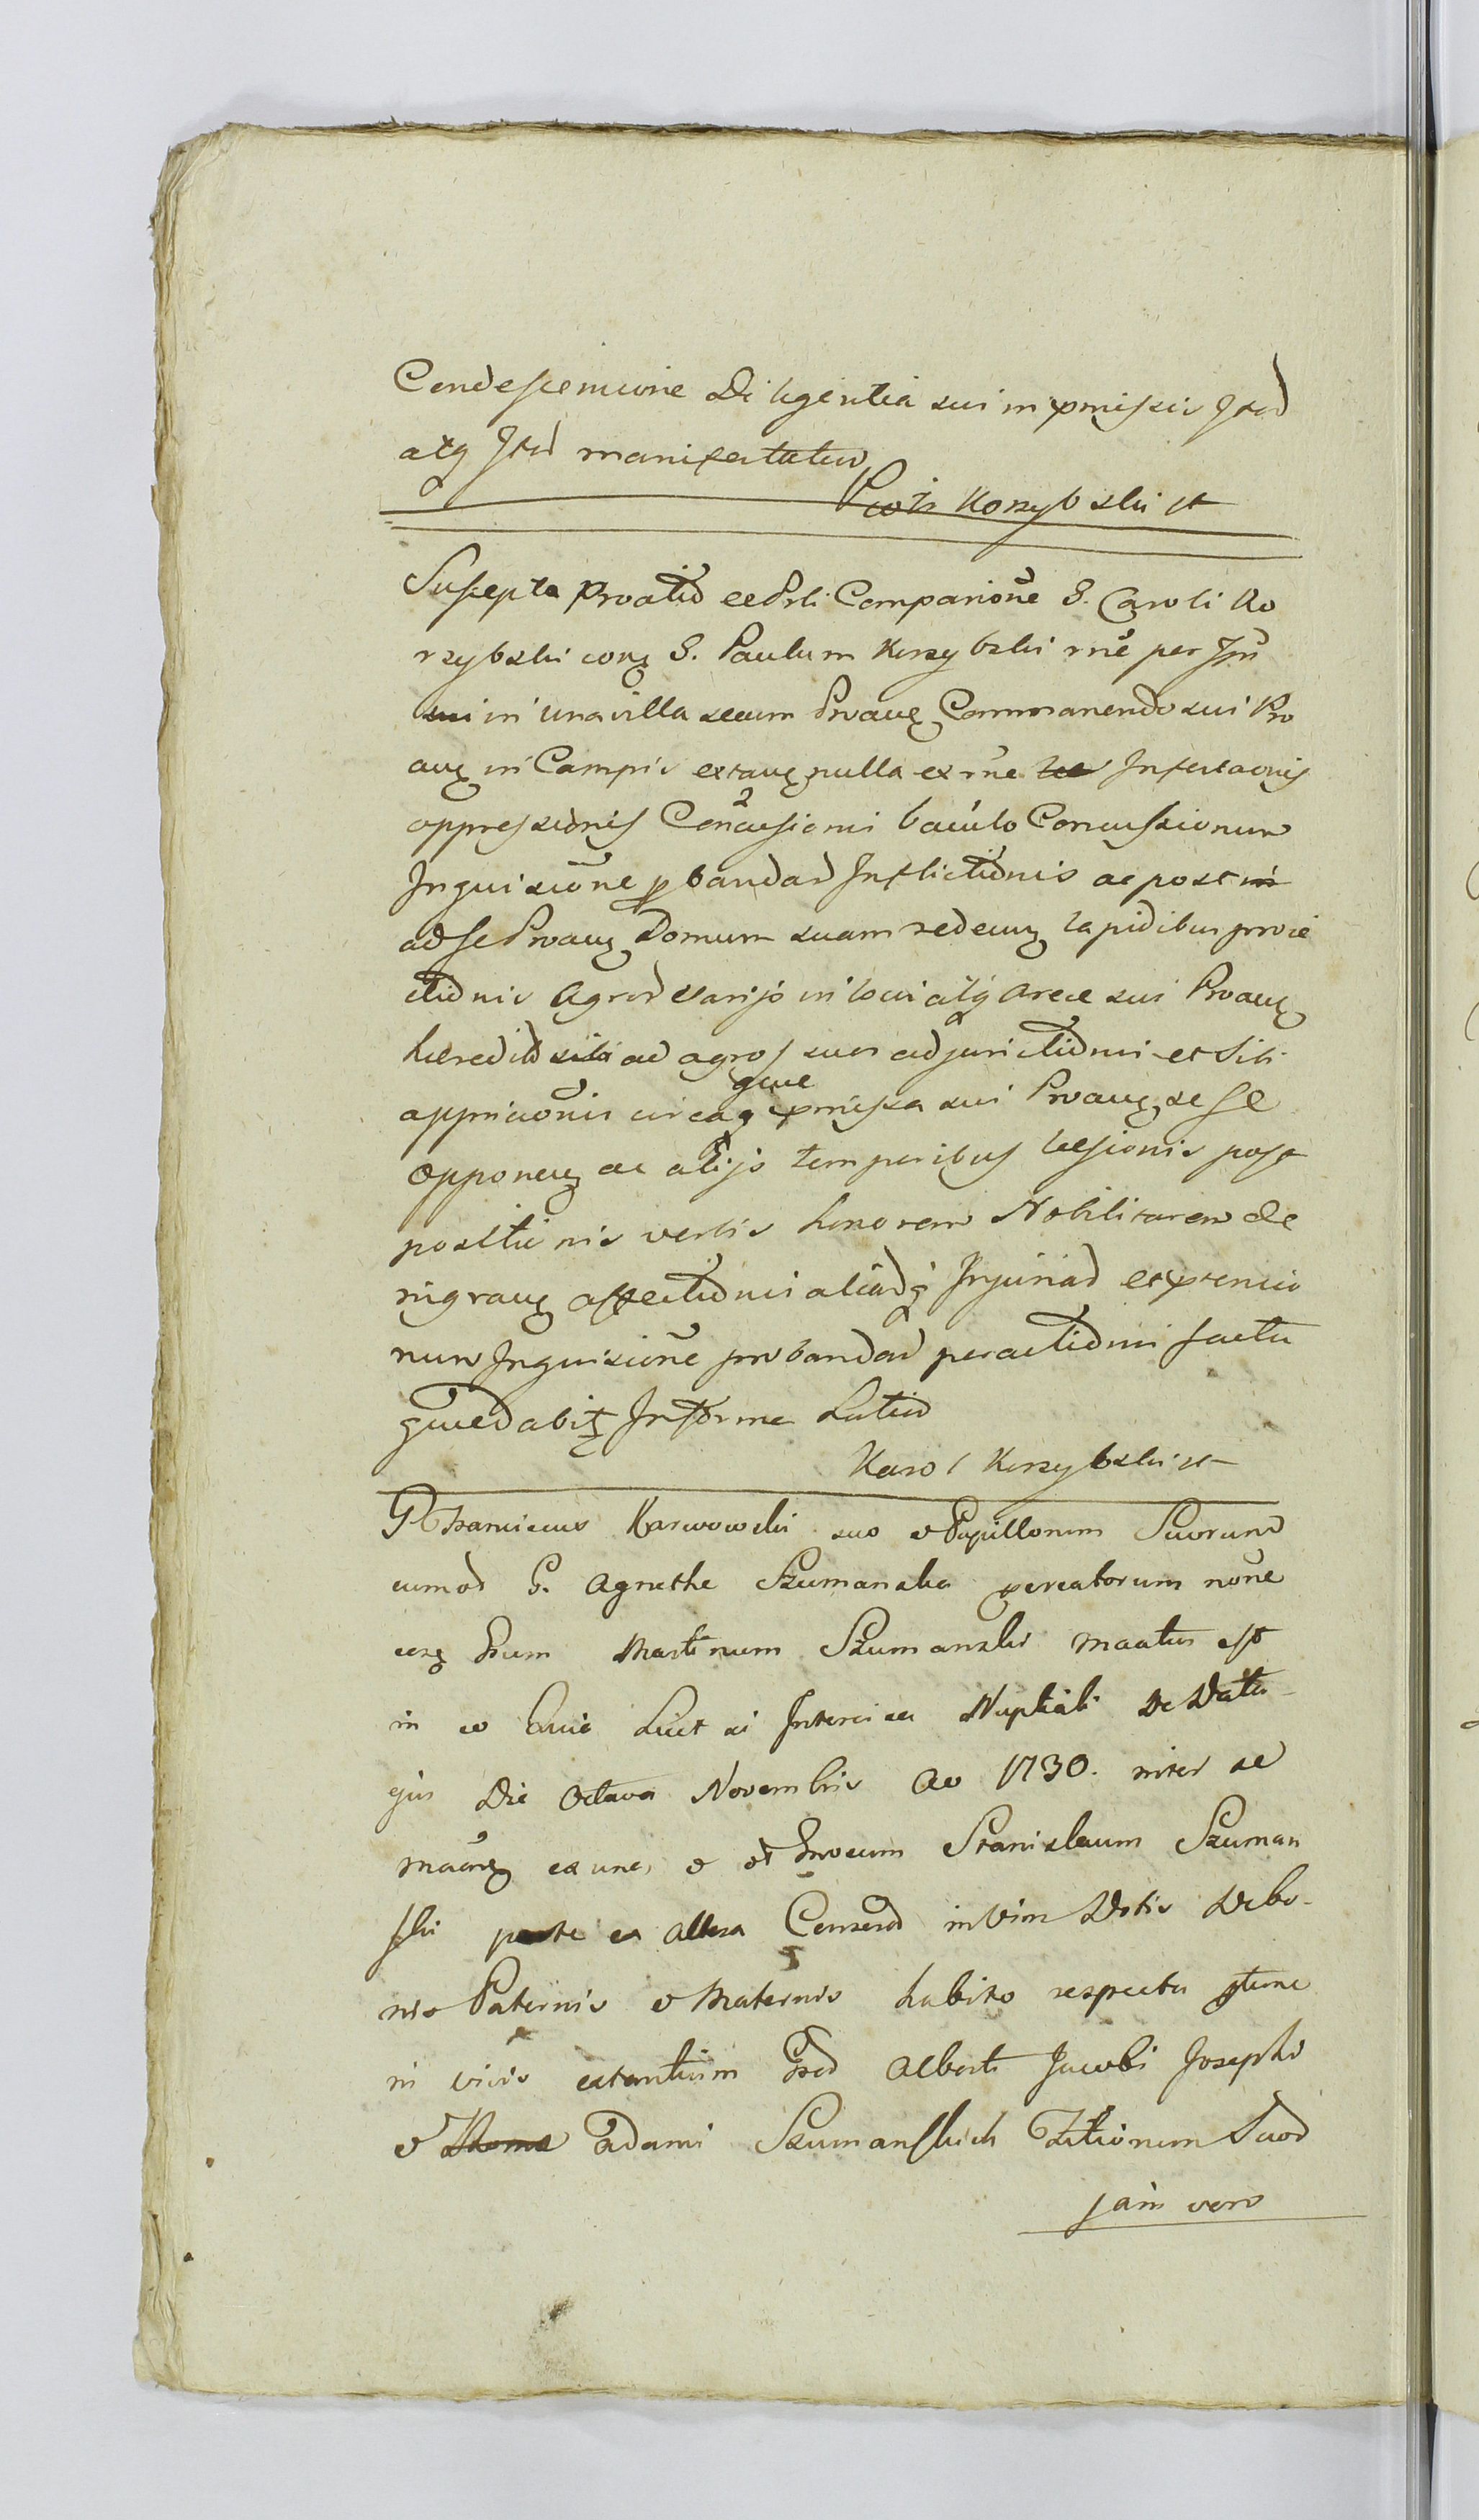 Condescensione Diligentia sui in pmissis Jtad
atq Jtad manifestatur
Piotr Korzybski st
Suscepta Proatid ee Prli Comparione G. Caroli Ko
rzybski conq G. Paulum Korzybski rne per Jpu
in una villa secum Proanq Commanendo sui Pro
anq in Campis extanq nulla ex rne Infestaonis
oppressionis Concusionis baculo Concussionum
Inquisione pbandar Inflictidnis ac post
ad se Proanq Domum suam redeunq lapidibus proie
ctidnis Agror varijs in locis atq Arece sui Proanq
hered ad agros suos adjunctidnis et Sibi
appricionis circaq que pmissa sui Proanq se se
opponenq ac alijs temporibus lesionis post
positionis verbis honorem Nobilitarem de
nigranq affectidnis aliadq Injuriad et
num Inquisione probandar peractidnis factu
quedabitq Informe Latius
Karol Korzybski st
G Franciscus Karwowski suo et Pupillorum Suorum
cumod G. Agnethe Szumanska procreatorum none
conq Grum Martinum Szumanski maatus est
in eo Quia Licet is Intercisa Nuptiali De Data
ejus Die Octava Novembris Ao 1730. inter se
maanq ex una, et et Gnosum Stanislaum Szuman
ski parte ex altera Censend in vim Dotis De bo-
nis Paternis et Maternis habito respectu tunc
in vivis extantium Gsod Alberti Jacobi Josephi
et Adami Szumanskich Suod
jam vero